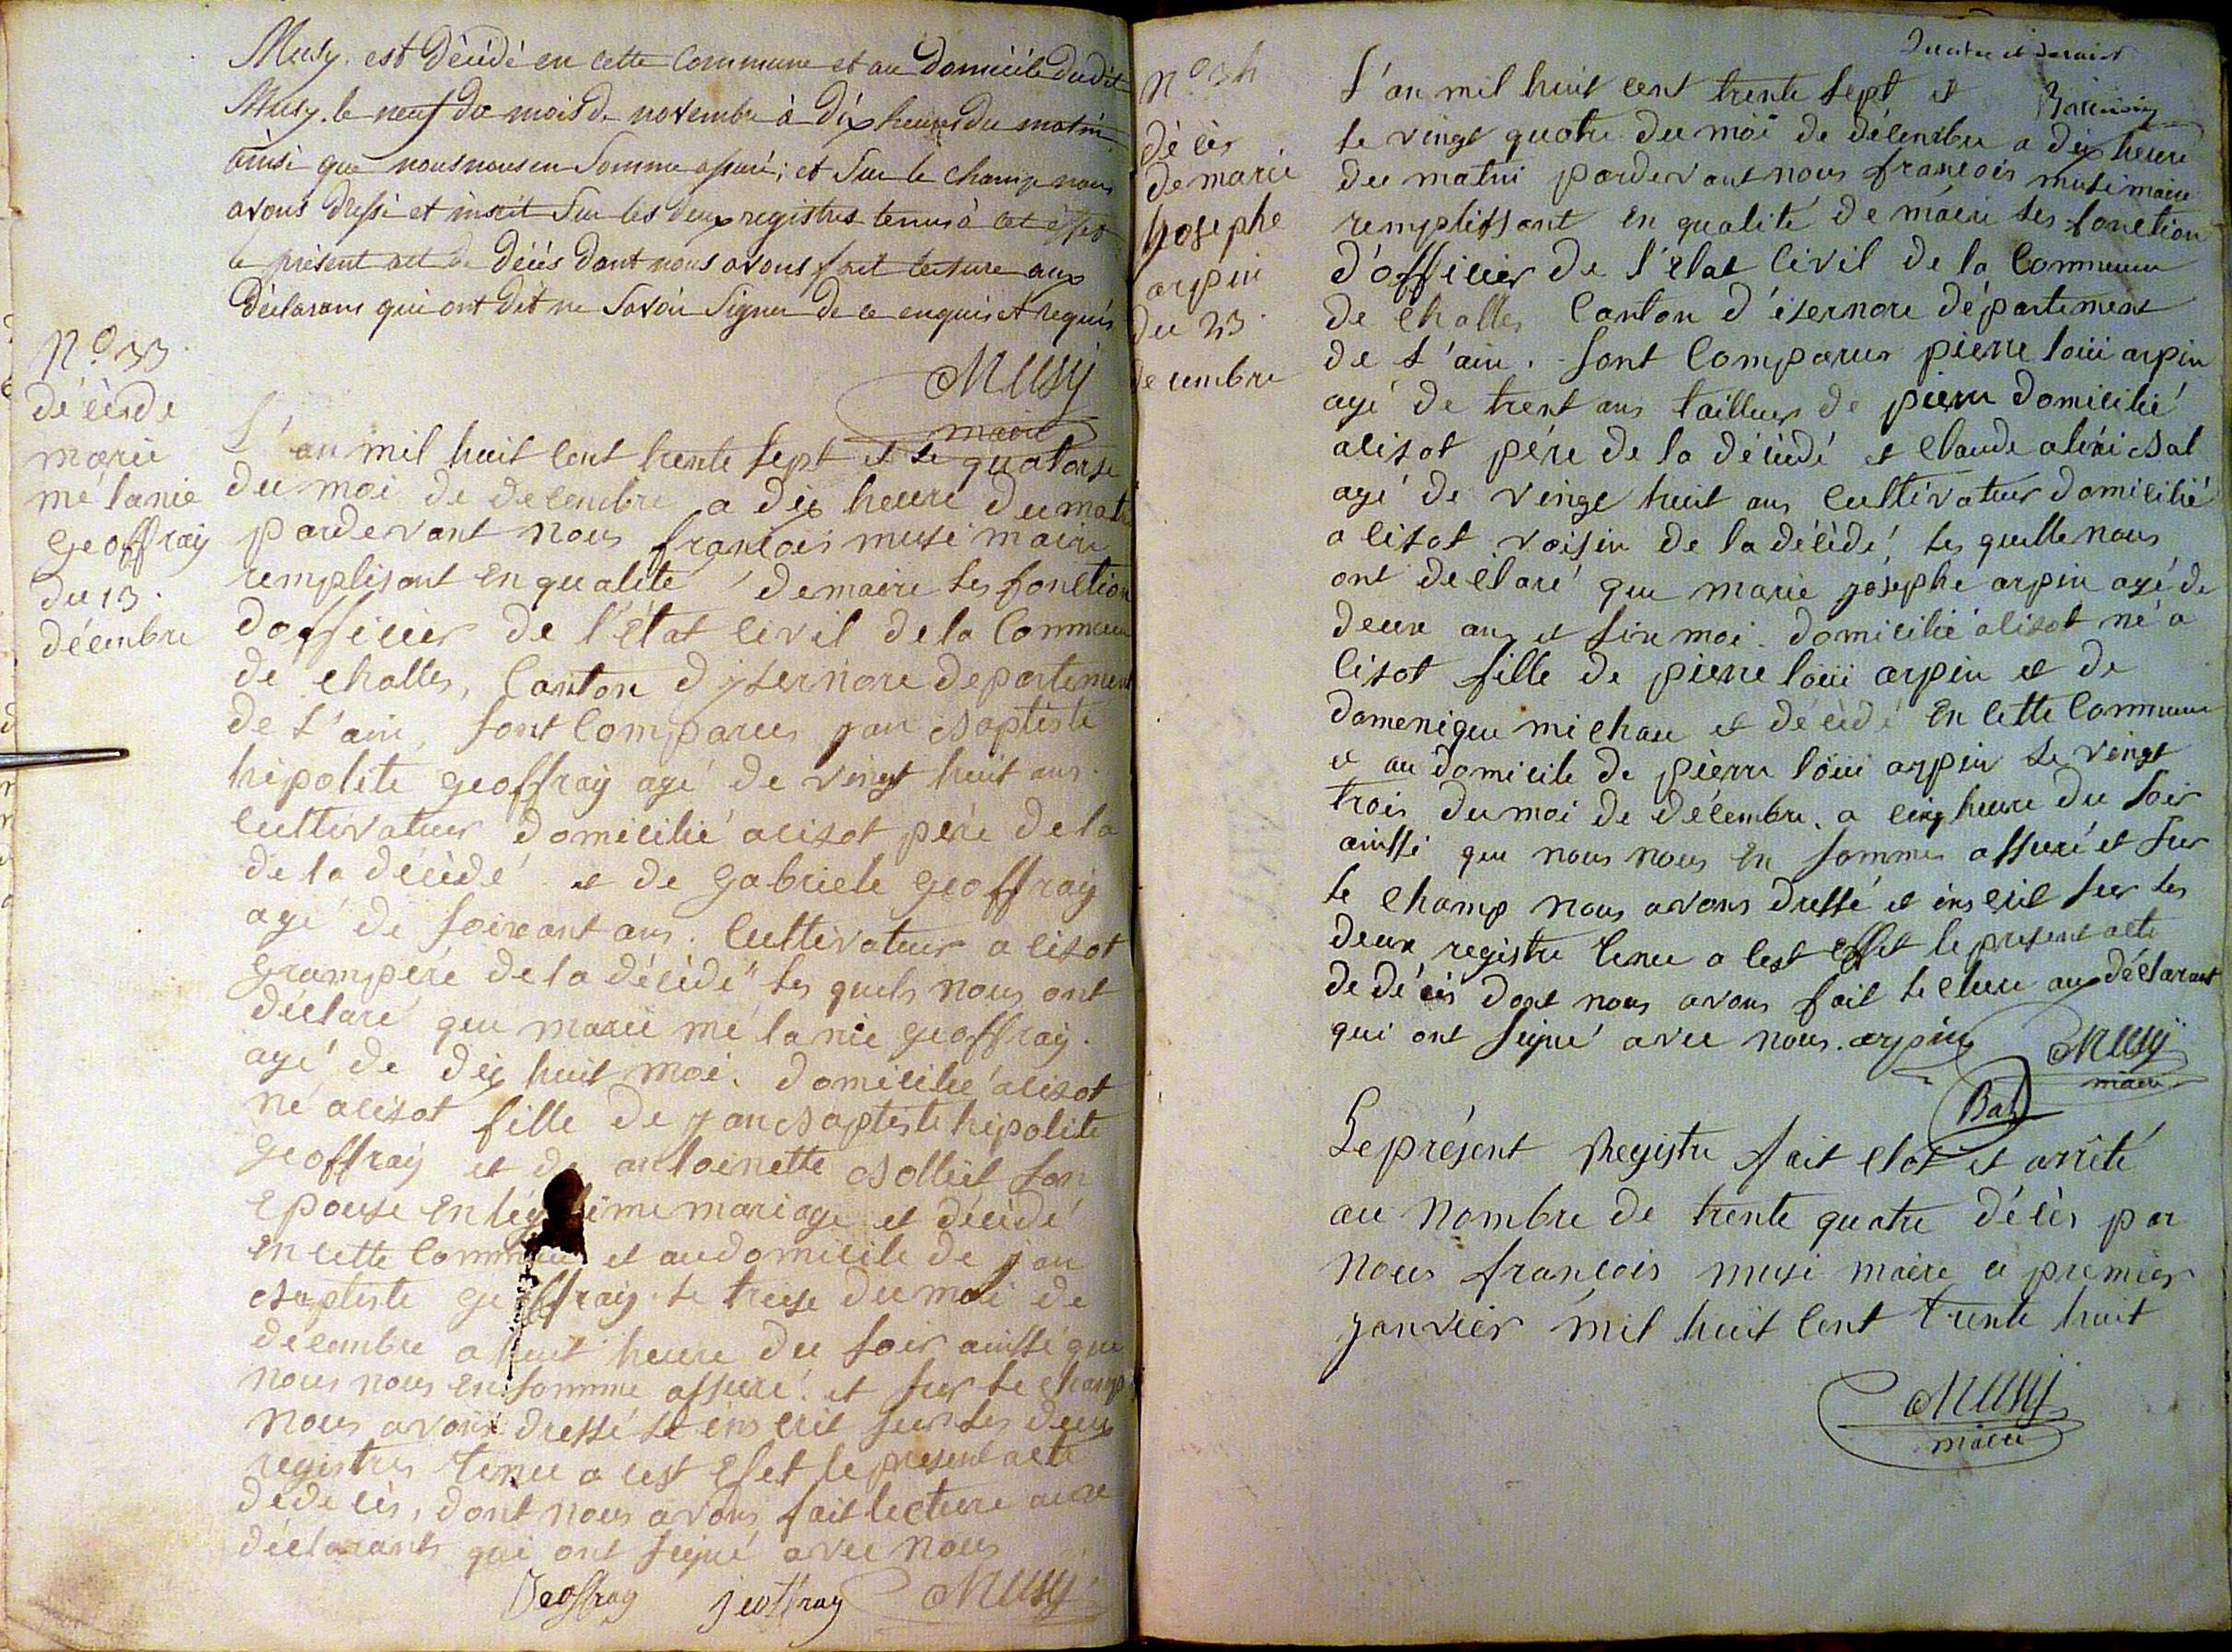 Musy. est décédé en cette Commune et au Domicile dudit
Musy. le neuf du mois de novembre à dix heures du matin
ainsi que nous nous en somme assuré; et Sur le champ nous
avons dressé et inscrit Sur les deux registres tenus à cet effet
le présent act de décés dont nous avons fait lecture aux
Déclarans qui ont dit ne Savoir Signer de ce enquis et requis
Musy
maire
N.º 33
décès de
marie
mélanie
geoffray
du 13.
décembre
L'an mil huit cent trente sept et le quatorse
du moi de decembre a dix heure du matin
pardevant nous françois musi maire
remplisant en qualité de maire les fonction
dofficier de l'état civil de la Commune
de challes, Canton d'isernore departement
de l'ain, sont Comparus jan baptiste
hipolite geoffray agé de vingt huit ans.
Cultivateur domicilié a cisot pére de la
de la décédé et de gabriele geoffray
agé de soixant ans. Cultivateur a cisot
grampére de la décédé les quels nous ont
déclaré que marie mélanie geoffray.
agé de dix huit moi. domicilié a cisot
né a cisot fille de jan baptiste hipolite
geoffray et de antoinette bolliet son
epouse en légitime mariage et décédé
en cette Commune et au domicile de jan
baptiste geoffray le treise du moi de
décembre a huit heure du soir ainssi que
nous nous en somme assuré. et sur le champ
nous avons dressé et inscrit sur les deux
registres tenu a cest efet le present acte
de decès, dont nous avons fait lecture aux
déclarants qui ont signé avec nous
Geoffray jeoffray Musy
N.º 34
décès
de marie
josephe
arpin
du 23.
decembre
L'an mil huit cent trente sept et
le vingt quatre du moi de décembre a dix heure
du matin pardevant nous françois musi maire
remplissant en qualité de maire les fonction
d'officier de l'état civil de la Commune
de challes Canton d'isernore département
de l'ain. sont Comparus pierre loui arpin
agé de trent ans tailleur de pierre domicilié
a cisot pére de la décédé et Claude bal
agé de vingt huit ans Cultivateur domicilié
a cisot voisin de la décédé, les quelle nous
ont déclaré que marie jósephe arpin agé de
deux ans et six moi. domicilié a cisot né a
cisot fille de pierre loui arpin et de
domenique michau et décédé en cette Commune
et au domicile de pierre loui arpin le vingt
trois du moi de décembre. a cinq heure du soir
ainssi que nous nous en sommes assuré et sur
le champ nous avons dressé et inscrit sur les
deux registre tenu a cest effet le present acte
de décès dont nous avons fait lecture aux déclarant
qui ont signé avec nous. arpin Musy
maire
Bal
Le présent Registre fait clot et arrêté
au nombre de trente quatre décès par
nous françois musi maire ce premier
janvier mil huit cent trente huit
Musy
maire